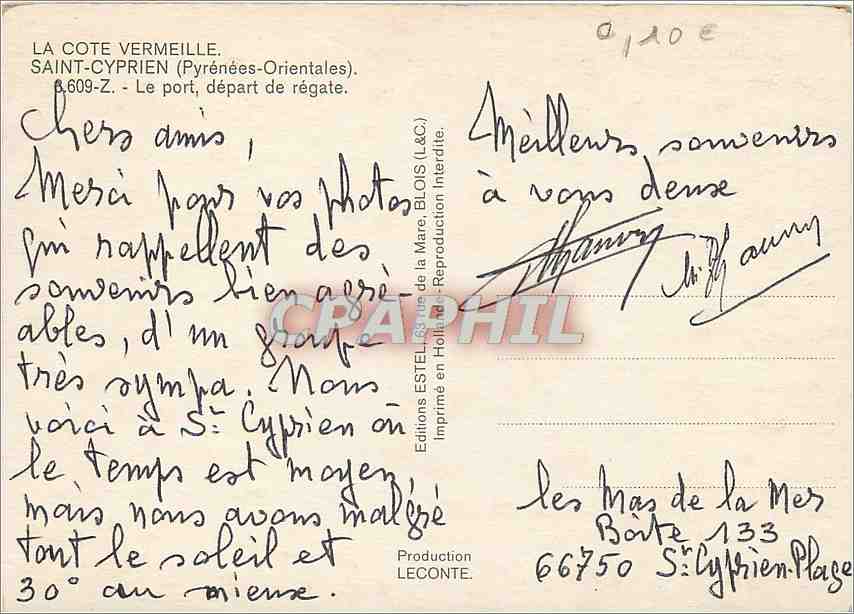 LA COTE VERMEILLE.
SAINT-CYPRIEN (Pyrénées-Orientales).
8.609-Z. - Le port, départ de régate.
Chers amis,
Merci pour vos photos
qui rappellent des
souvenirs bien agré-
ables, d'un groupe
très sympa. Nous
voici à St Cyprien où
le temps est moyen,
mais nous avons malgré
tout le soleil et
30° au mieux.
Editions ESTEL, 63 rue de la Mare, BLOIS (L&C.)
Imprimé en Hollande - Reproduction Interdite.
Production
LECONTE.
0,10 €
Meilleurs souvenirs
à vous deux
les Mas de la Mer
Boîte 133
66750 St Cyprien-Plage
CPAPHIL